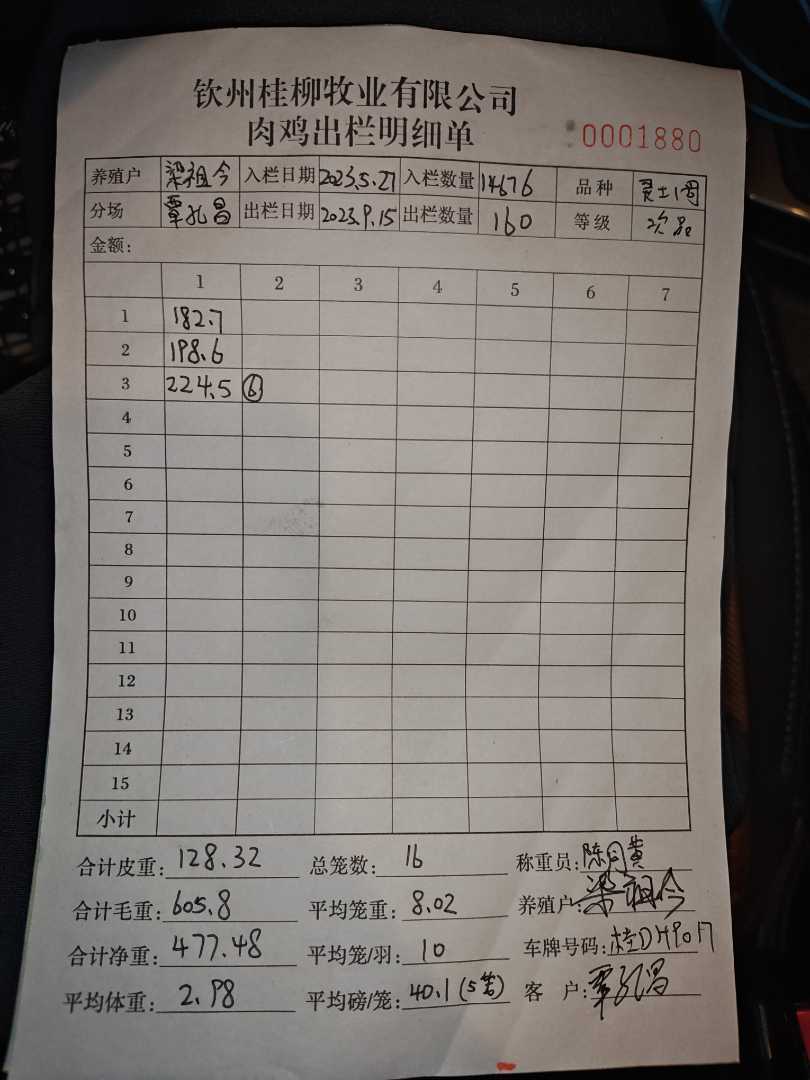 钦州桂柳牧业有限公司
肉鸡出栏明细单 0001880
养殖户 梁祖今 入栏日期 2023.5.27 入栏数量 14676 品种 灵土1号
分场 覃孔昌 出栏日期 2023.9.15 出栏数量 160 等级 次品
金额:
1 2 3 4 5 6 7
1 182.7
2 198.6
3 224.5 ⑥
4
5
6
7
8
9
10
11
12
13
14
15
小计
合计皮重: 128.32 总笼数: 16 称重员: 陈月黄
合计毛重: 605.8 平均笼重: 8.02 养殖户: 梁祖今
合计净重: 477.48 平均笼/羽: 10 车牌号码: 桂D
平均体重: 2.98 平均磅/笼: 40.1 (5笼) 客 户: 覃孔昌